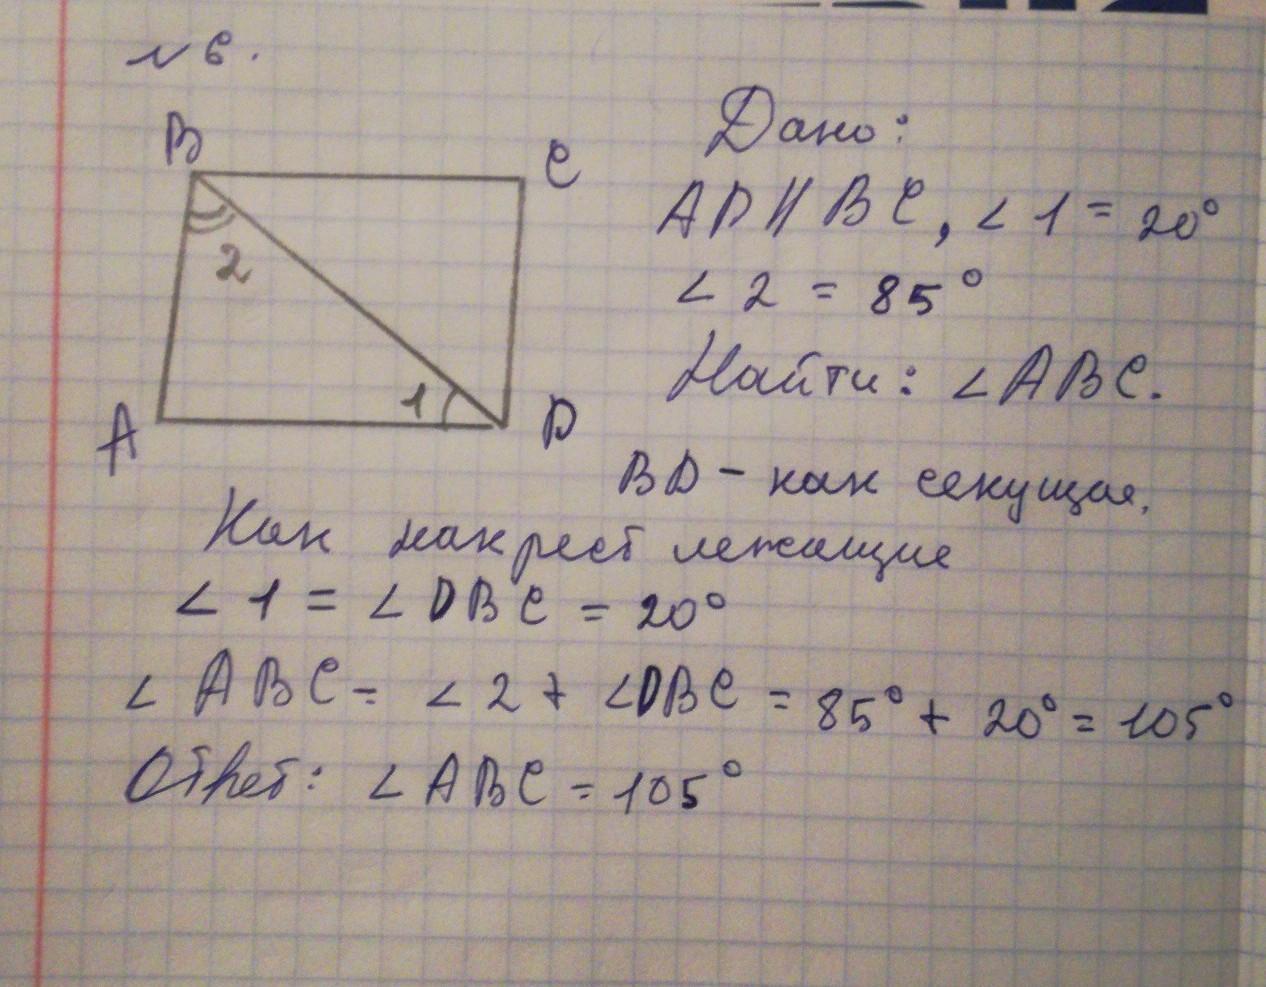 № 6.
B
C
2
1
A
D
Дано:
AD || BC, ∠1 = 20°
∠2 = 85°
Найти: ∠ABC.
BD - как секущая,
Как накрест лежащие
∠1 = ∠DBC = 20°
∠ABC = ∠2 + ∠DBC = 85° + 20° = 105°
Ответ: ∠ABC = 105°